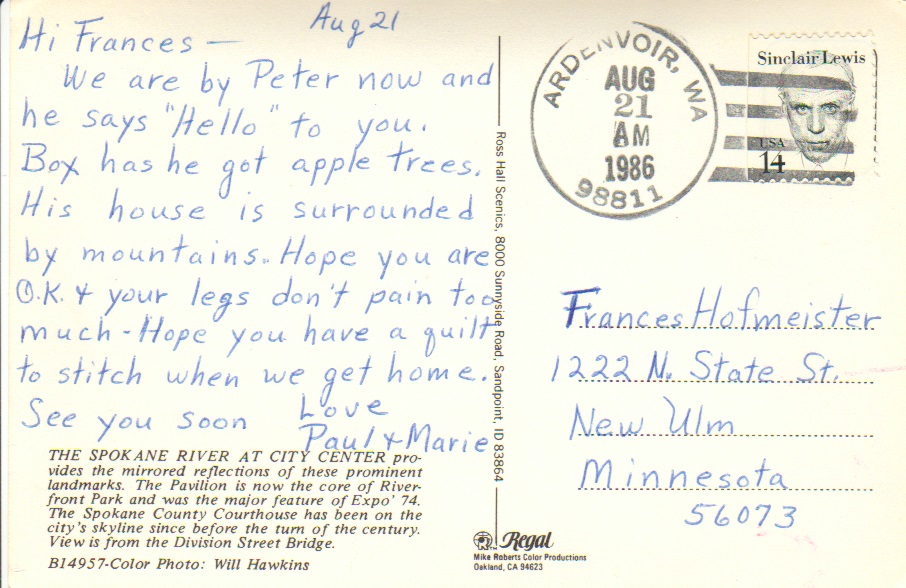 Aug 21
Hi Frances —
We are by Peter now and
he says "Hello" to you.
Boy has he got apple trees.
His house is surrounded
by mountains. Hope you are
O.K. & your legs don't pain too
much - Hope you have a quilt
to stitch when we get home.
See you soon Love
Paul & Marie
THE SPOKANE RIVER AT CITY CENTER pro-
vides the mirrored reflections of these prominent
landmarks. The Pavilion is now the core of River-
front Park and was the major feature of Expo' 74.
The Spokane County Courthouse has been on the
city's skyline since before the turn of the century.
View is from the Division Street Bridge.
B14957-Color Photo: Will Hawkins
Ross Hall Scenics, 8000 Sunnyside Road, Sandpoint, ID 83864
Regal
Mike Roberts Color Productions
Oakland, CA 94623
ARDENVOIR, WA
AUG
21
AM
1986
98811
Sinclair Lewis
USA
14
Frances Hofmeister
1222 N. State St.
New Ulm
Minnesota
56073